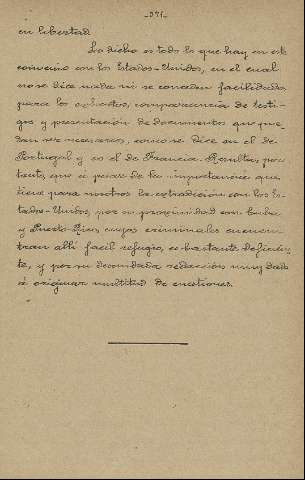 -571-
en libertad.
Lo dicho es todo lo que hay en este
convenio con los Estados-Unidos, en el cual
no se dice nada ni se conceden facilidades
para los exhortos, comparecencia de testi-
gos y presentación de documentos que pue-
dan ser necesarios, como se dice en el de
Portugal y es el de Francia. Resulta, por
tanto, que á pesar de la importancia que
tiene para nosotros la extradición con los Es-
tados-Unidos, por su proximidad con Cuba
y Puerto-Rico, cuyos criminales encuen-
tran allí facil refugio, es bastante deficien-
te, y por su descuidada redacción muy dada
á originar multitud de cuestiones.